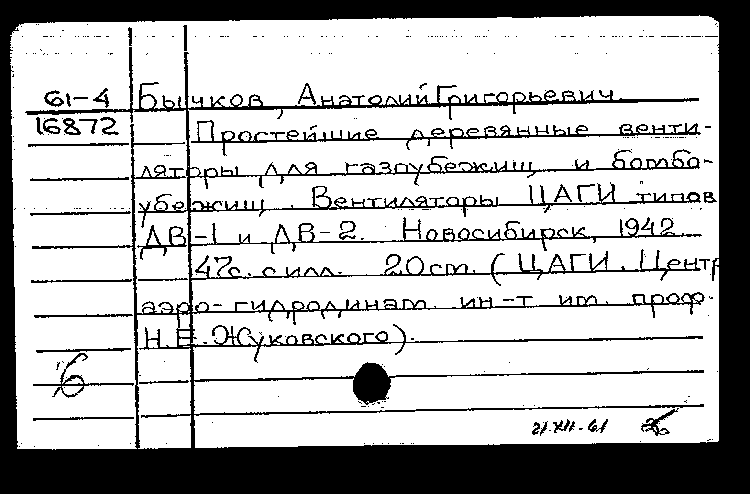 61-4 Бычков, Анатолий Григорьевич.
16872 Простейшие деревянные венти-
ляторы для газоубежищ и бомбо-
убежищ. Вентиляторы ЦАГИ типов
ДВ-1 и ДВ-2. Новосибирск, 1942.
47с. с илл. 20см. (ЦАГИ. Центр
аэро-гидродинам. ин-т им. проф.
Н.Е. Жуковского).
6
21.XII-61